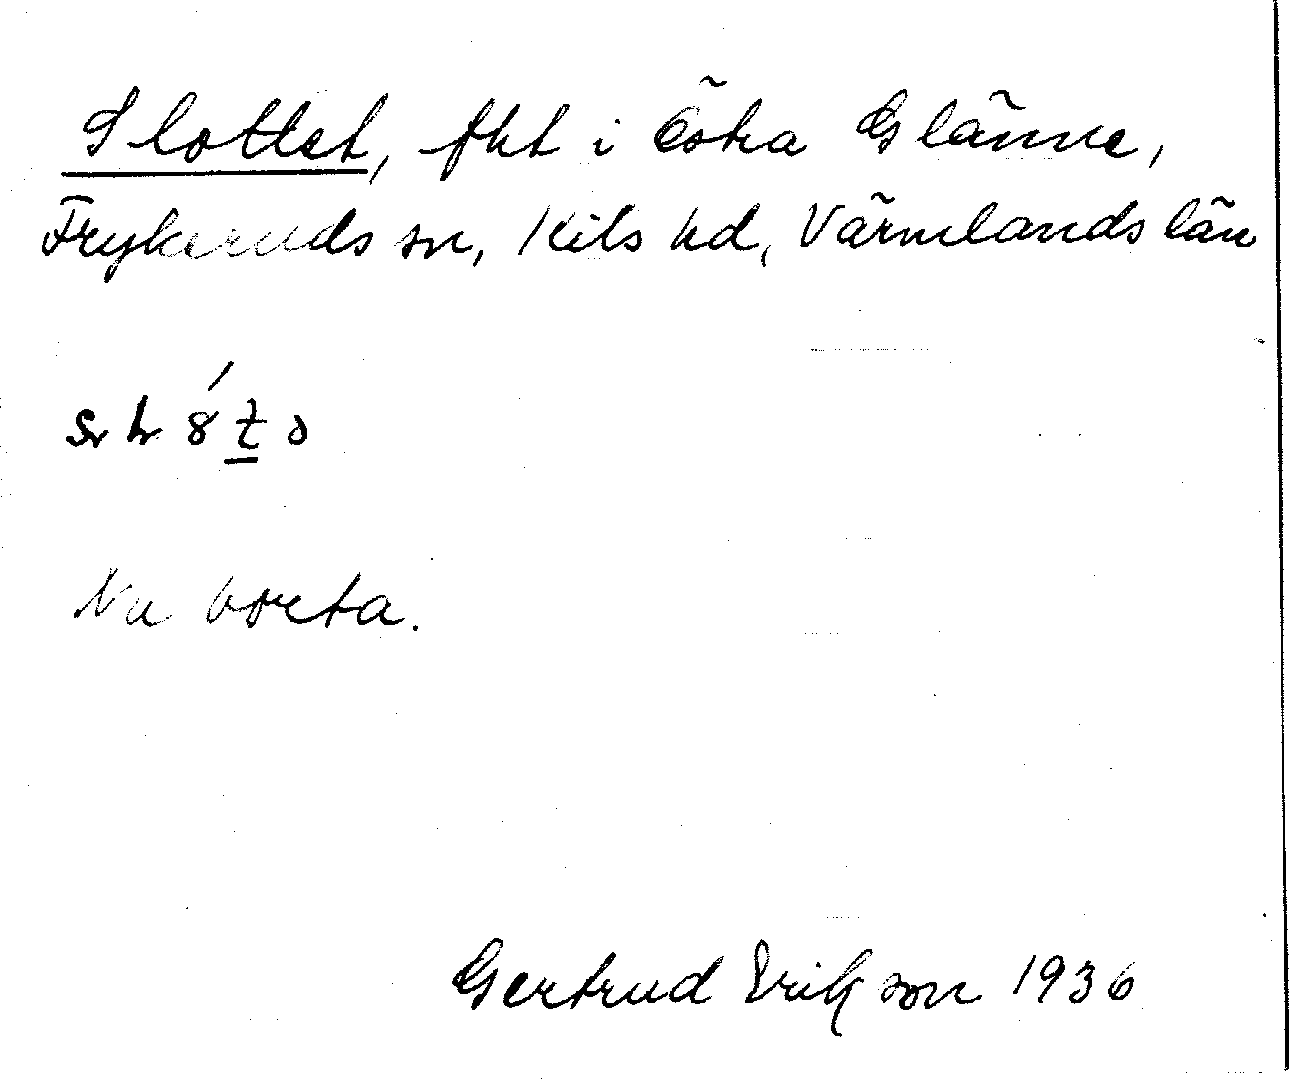 Slottet, fht i Östra Glänne,
Frykeruds sn, Kils hd, Värmlands län
Nu borta.
Gertrud Erikson 1936